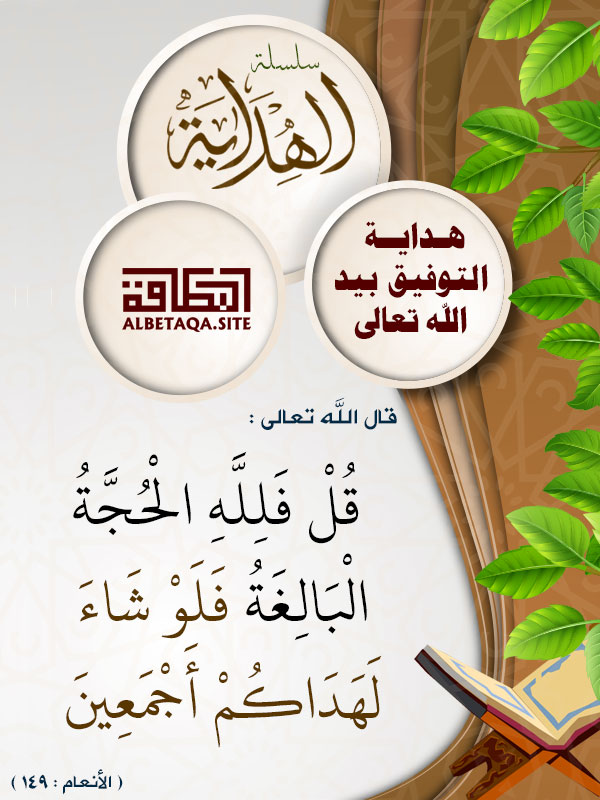 سلسلة
الهِدَايَة
هـدايـة
التوفيق بيد
الله تعالى
البطاقة
ALBETAQA.SITE
قال اللَّه تعالى :
قُلْ فَلِلَّهِ الْحُجَّةُ
الْبَالِغَةُ فَلَوْ شَاءَ
لَهَدَاكُمْ أَجْمَعِينَ
( الأنعام : ١٤٩ )